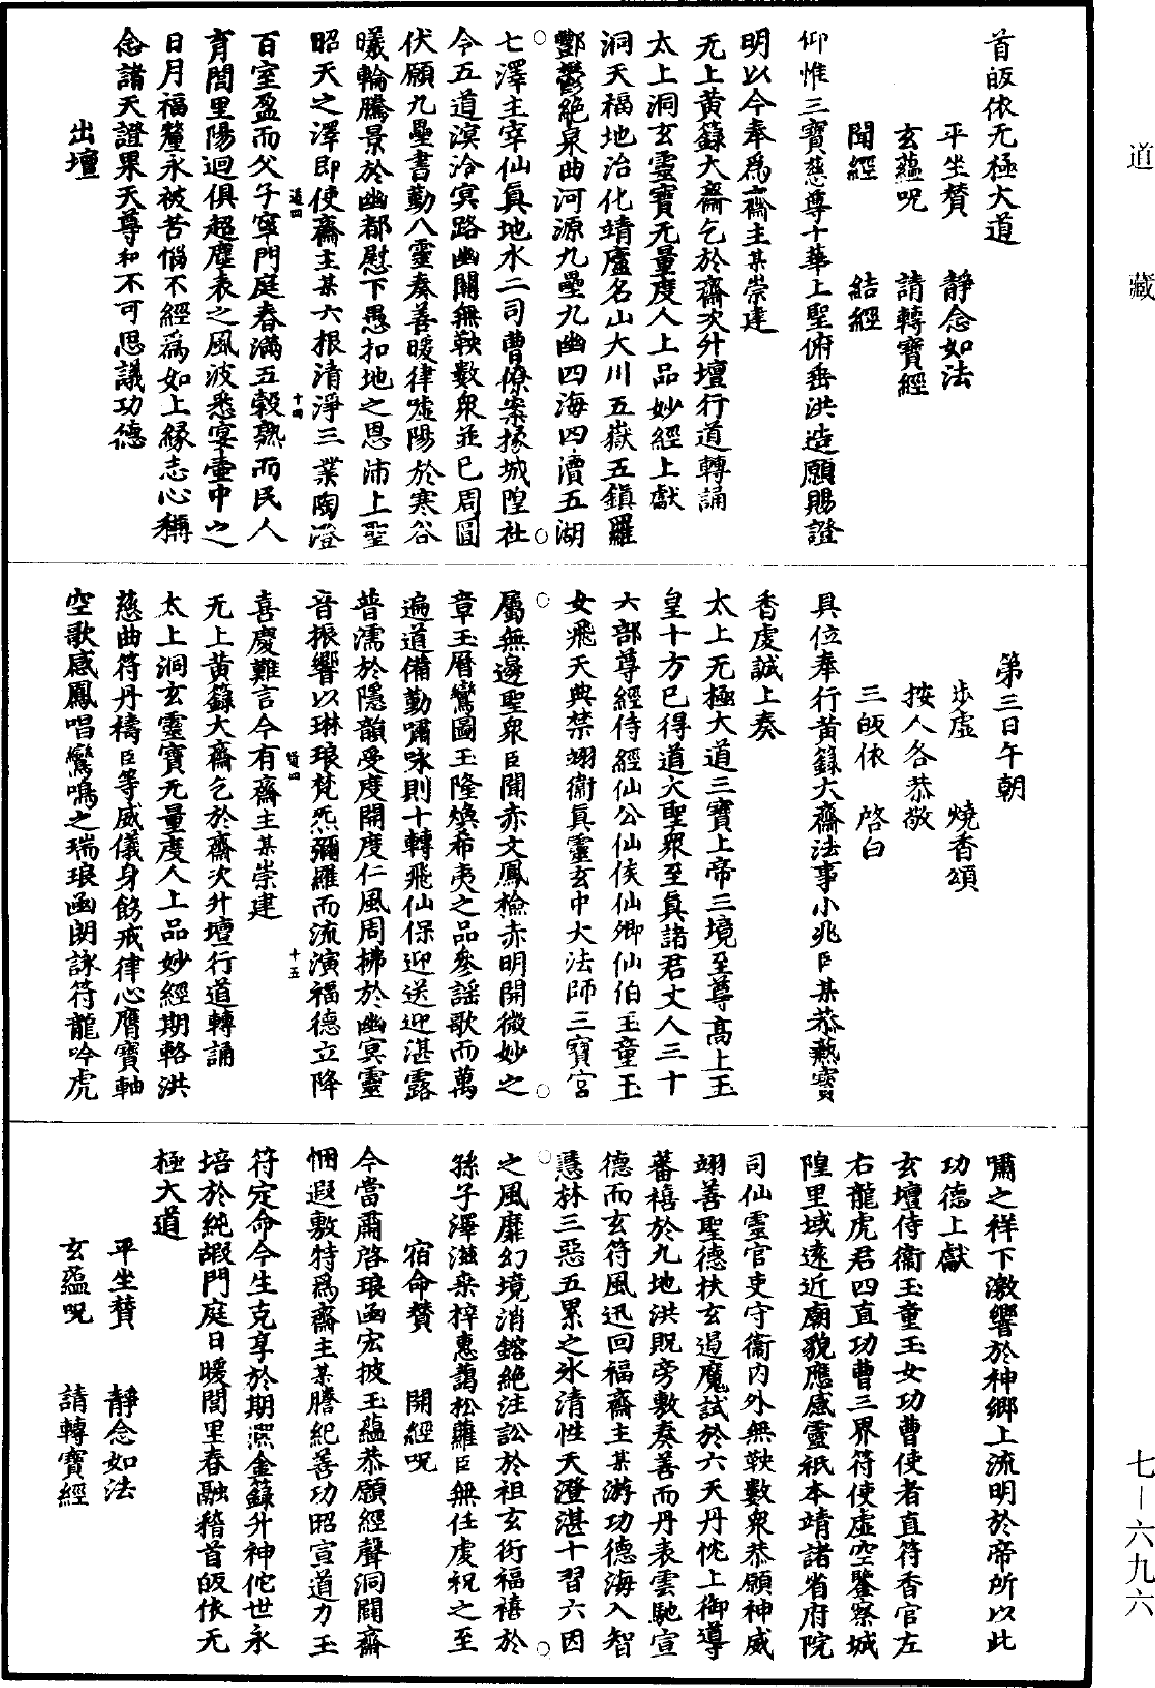 道藏
首皈依无極大道
平坐賛　靜念如法
玄蘊呪　請轉寶經
開經　結經
仰惟三寶慈尊十華上聖俯垂洪造願賜證
明以今奉爲齋主某崇建
无上黃籙大齋乞於齋次升壇行道轉誦
太上洞玄靈寶无量度人上品妙經上獻
洞天福地治化靖廬名山大川五嶽五鎮羅
酆鬱絶泉曲河源九壘九幽四海四瀆五湖
七澤主宰仙眞地水二司曹僚案掾城隍社
令五道溟泠冥路幽關無鞅數衆並已周圓
伏願九壘書勤八靈奏善暖律噓陽於寒谷
曦輪騰景於幽都慰下愚扣地之恩沛上聖
昭天之澤即使齋主某六根清淨三業陶澄
道四　十四
百室盈而父子寧門庭春滿五穀熟而民人
育閭里陽迴俱超塵表之風波悉宴壷中之
日月福釐永被苦惱不經爲如上縁志心稱
念諸天證果天尊和不可思議功德
出壇
第三日午朝
步虛　燒香頌
按人各恭敬
三皈依　啓白
具位奉行黃籙大齋法事小兆臣某恭爇寶
香虔誠上奏
太上无極大道三寶上帝三境至尊高上玉
皇十方已得道大聖衆至眞諸君丈人三十
六部尊經侍經仙公仙侯仙卿仙伯玉童玉
女飛天典禁翊衞眞靈玄中大法師三寶宮
屬無邊聖衆臣聞赤文鳳檢赤明開微妙之
章玉曆鸞圖玉隆煥希夷之品參謡歌而萬
遍道備勤嘯咏則十轉飛仙保迎送迎湛露
普濡於隱韻受度開度仁風周拂於幽冥靈
音振響以琳琅梵炁彌羅而流演福德立降
道四　十五
喜慶難言今有齋主某崇建
无上黃籙大齋乞於齋次升壇行道轉誦
太上洞玄靈寶无量度人上品妙經期輅洪
慈曲符丹禱臣等威儀身飭戒律心膺寶軸
空歌感鳳唱鸞鳴之瑞琅函朗詠符龍吟虎
嘯之祥下激響於神郷上流明於帝所以此
功德上獻
玄壇侍衞玉童玉女功曹使者直符香官左
右龍虎君四直功曹三界符使虛空鑒察城
隍里域遠近廟貌應感靈祇本靖諸省府院
司仙靈官吏守衞内外無鞅數衆恭願神威
翊善聖德扶玄遏魔試於六天丹忱上御導
蕃禧於九地洪貺旁敷奏善而丹表雲馳宣
德而玄符風迅回福齋主某游功德海入智
慧林三惡五累之氷清性天澄湛十習六因
之風靡幻境消鎔絶注訟於祖玄衍福禧於
孫子澤滋桒梓惠藹松蘿臣無任虔祝之至
宿命賛　開經呪
今當肅啓琅函宏披玉蘊恭願經聲洞闢齋
悃遐敷特爲齋主某謄紀善功昭宣道力玉
符定命今生克享於期㴠金籙升神佗世永
培於純嘏門庭日暖閭里春融稽首皈依无
極大道
平坐賛　靜念如法
玄蘊呪　請轉寶經
七—六九六